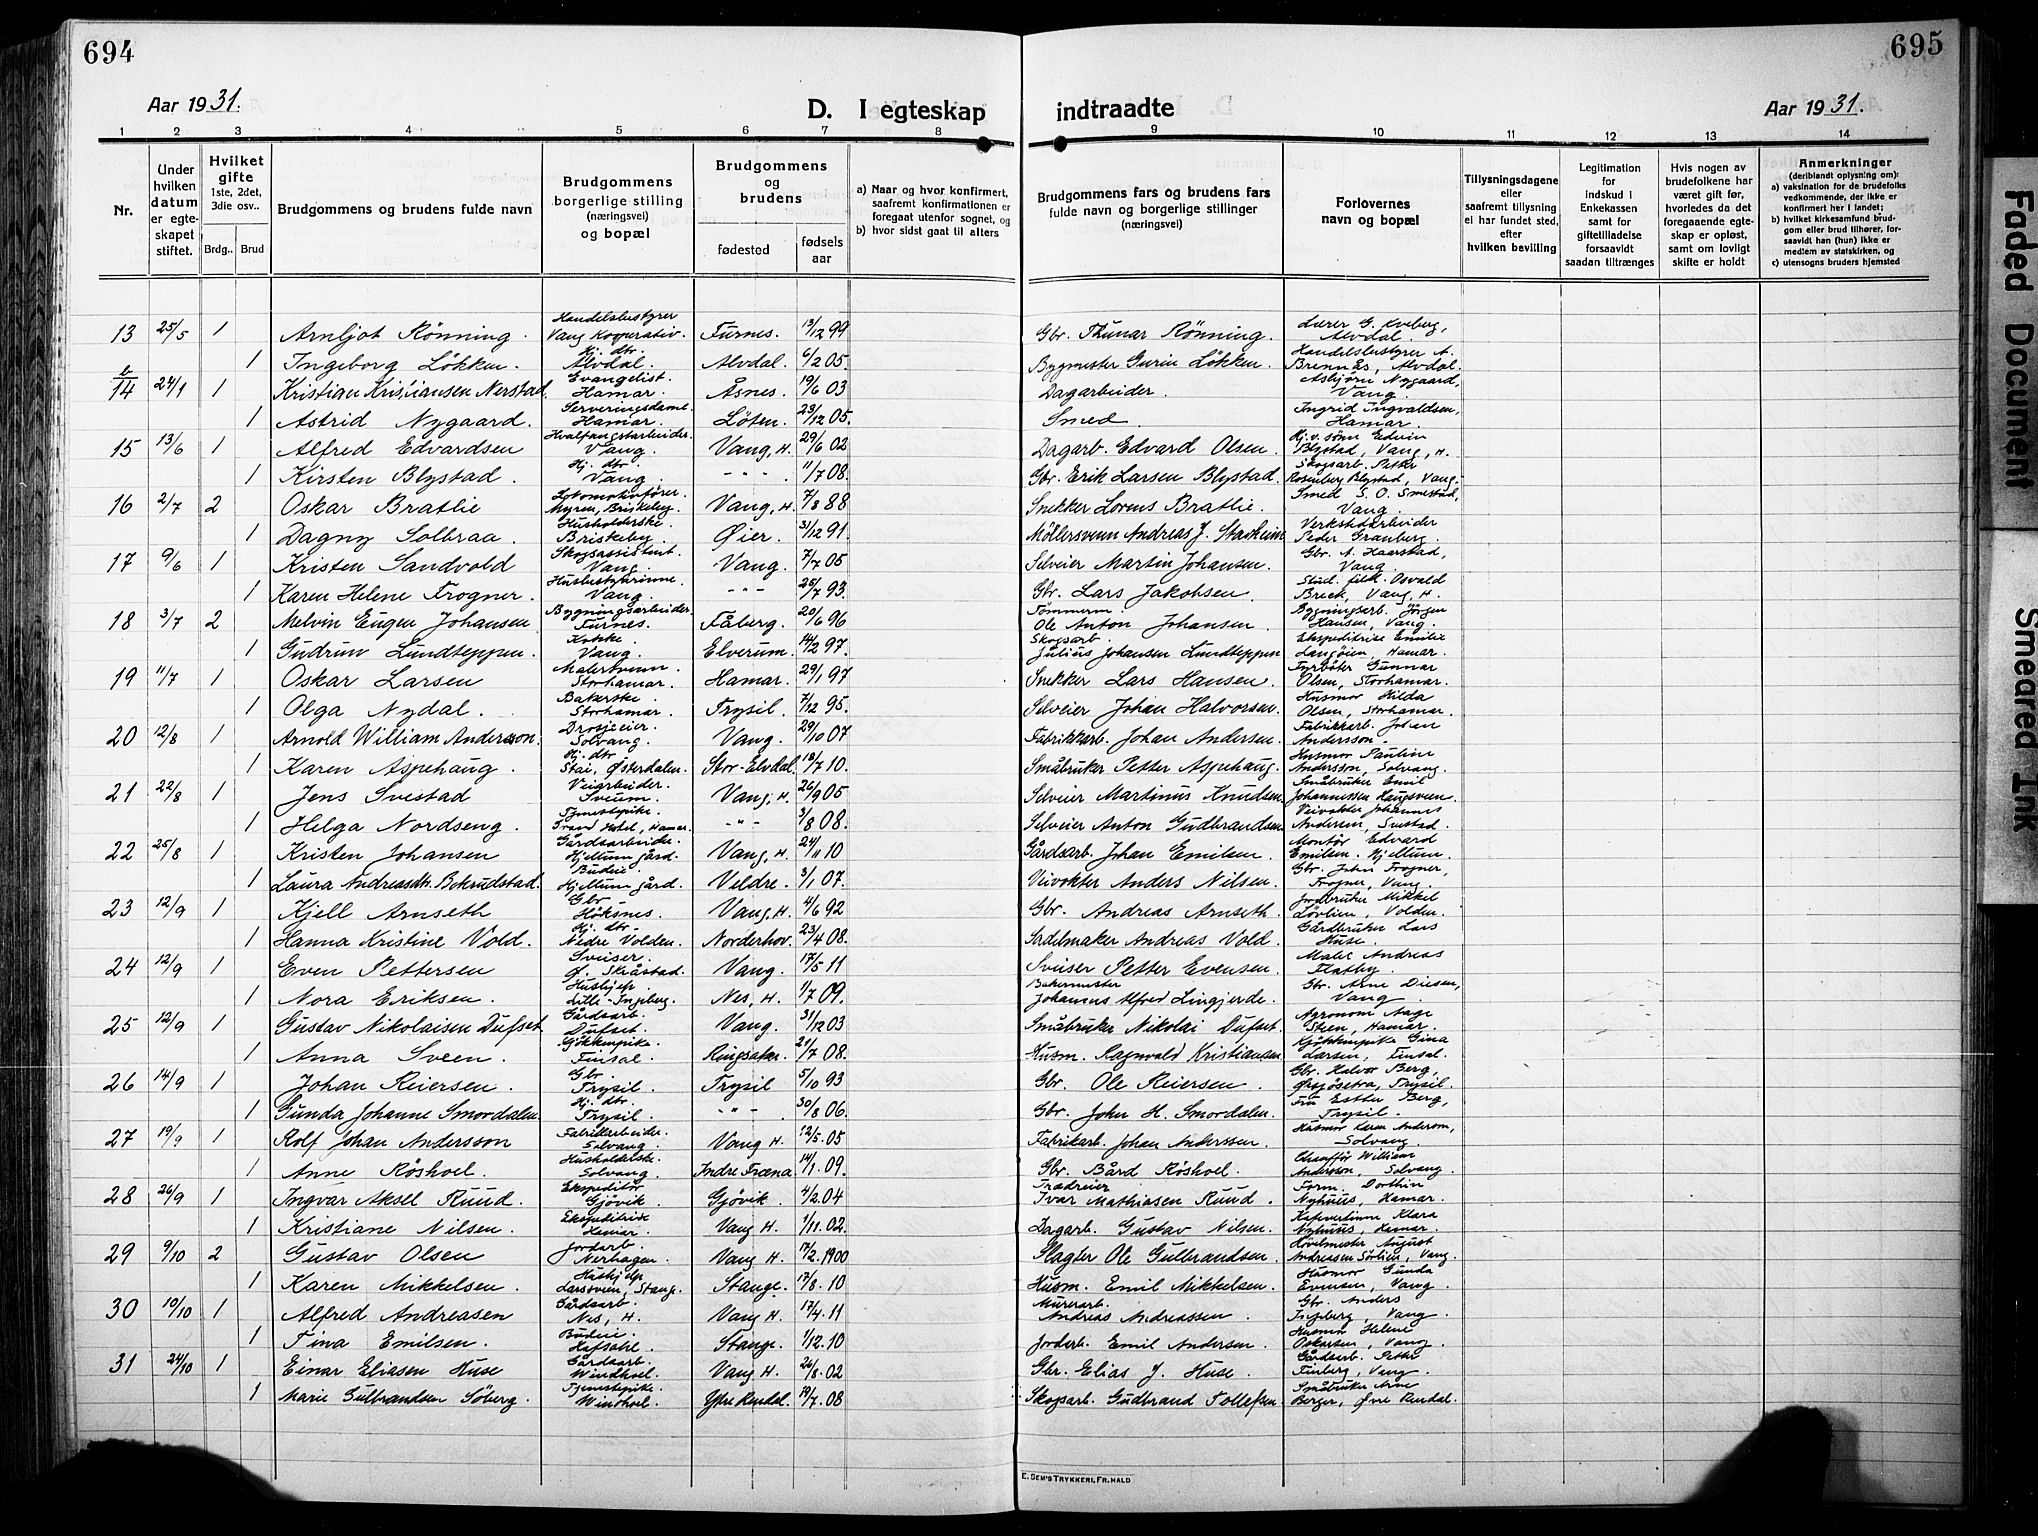 694
695
Aar 1931.
D. I egteskap indtraadte
Aar 1931.
1 2 3 4 5 6 7 8 9 10 11 12 13 14
Nr.
Under hvilken datum er egteskapet stiftet.
Hvilket gifte 1ste, 2det, 3die osv..
Brdg.. Brud
Brudgommens og brudens fulde navn
Brudgommens borgerlige stilling (næringsvei) og bopæl
Brudgommens og brudens
fødested
fødselsaar
a) Naar og hvor konfirmert, saafremt konfirmationen er foregaat utenfor sognet, og
b) hvor sidst gaat til alters
Brudgommens fars og brudens fars fulde navn og borgerlige stillinger (næringsvei)
Forlovernes navn og bopæl
Tillysningsdagene eller saafremt tillysning ei har fundet sted, efter hvilken bevilling
Legitimation for indskud i Enkekassen samt for giftetilladelse forsaavidt saadan tiltrænges
Hvis nogen av brudefolkene har været gift før, hvorledes da det foregaaende egteskap er opløst, samt om lovligt skifte er holdt
Anmerkninger (deriblandt oplysning om):
a) vaksination for de brudefolks vedkommende, der ikke er konfirmert her i landet;
b) hvilket kirkesamfund brudgom eller brud tilhører, forsaavidt han (hun) ikke er medlem av statskirken, og
c) utensogns bruders hjemsted
13 25/5 1 Arnljot Rønning. Handelsbestyrer Vang Kooperativ. Furnes. 13/12 99 Gbr. Thunar Rønning. Lærer G. Kveberg, Alvdal.
1 Ingeborg Løkken. Hj. dtr. Alvdal. Alvdal. 6/2 05. Bygmester Gurin Løkken. Handelsbestyrer A. Brennås, Alvdal.
14 24/1 1 Kristian Kristiansen Nerstad. Evangelist. Hamar. Åsnes. 19/6 03 Dagarbeider. Asbjørn Nygaard, Vang.
1 Astrid Nygaard. Serveringsdame. Hamar. Løten. 23/12 05. Smed. Ingrid Ingvaldsen, Hamar.
15 13/6 1 Alfred Edvardsen Hvalfangstarbeider. Vang. Vang, H. 29/6 02 Dagarb. Edvard Olsen. Hj.v. sønn Edvin Blystad, Vang, H.
1 Kirsten Blystad. Hj. dtr. Vang. - " - 11/7 08. Gbr. Erik Larsen Blystad. Skogsarb. Petter Rosenberg Blystad, Vang.
16 2/7 2 Oskar Bratlie Lokomotivfører. Myren, Briskeby. Vang, H. 7/8 88 Snekker Lorens Bratlie. Smed S. O. Smestad, Vang.
1 Dagny Solbraa. Husholderske. Briskeby. Øier. 31/12 91. Møllersvenn Andreas J. Stavheim Verkstedarbeider Peder Granberg.
17 9/6 1 Kristen Sandvold Skogsassistent. Vang. Vang. 7/7 05 Selveier Martin Johansen. Gbr. A. Haarstad, Vang.
1 Karen Helene Frogner. Husbestyrerinne. Vang. - " - 25/7 93. Gbr. Lars Jakobsen. Stud. filol. Osvald Breck, Vang, H.
18 3/7 2 Melvin Eugen Johansen Bygningsarbeider. Furnes. Fåberg. 20/6 96 Tømmerm. Ole Anton Johansen. Bygningsarb. Jørgen Hansen, Vang.
1 Gudrun Lundteppen. Kokke. Vang. Elverum. 14/2 97. Skogsarb. Julius Johansen Lundteppen Ekspeditrise Emilie Langøien, Hamar.
19 11/7 1 Oskar Larsen Malersvenn. Storhamar. Hamar. 29/1 97 Snekker Lars Hansen. Fyrbøter Gunnar Olsen, Storhamar.
1 Olga Nydal. Bakerske Storhamar. Trysil. 7/12 95. Selveier Johan Halvorsen. Husmor Hilda Olsen, Storhamar.
20 12/8 1 Arnold William Andersson. Drosjeeier. Solvang. Vang. 29/10 07 Fabrikkarb. Johan Andersen. Fabrikkarb. Johan Andersson.
1 Karen Aspehaug. Hj. dtr Stai, Østerdalen. Stor-Elvdal. 18/7 10. Småbruker Petter Aspehaug. Husmor Pauline Andersson, Solvang.
21 22/8 1 Jens Svestad Veiarbeider. Sveum. Vang, H. 26/9 05 Selveier Martinus Knudsen Småbruker Emil Johannessen Haugsveen.
1 Helga Nordseng. Tjenestepike. Grand Hotel, Hamar. - " - 3/8 08. Selveier Anton Gudbrandsen. Veivokter Johannes Andersen, Svestad.
22 25/8 1 Kristen Johansen Gårdsarbeider. Hjellum gård. Vang, H. 24/11 10 Gårdsarb. Johan Emilsen. Montør Edvard Emilsen. Hjellum.
1 Laura Andreasdtr. Bekrudstad. Budeie. Hjellum gård. Veldre. 3/1 07. Veivokter Anders Nilsen. Gbr. John Frogner, Frogner, Vang.
23 12/9 1 Kjell Arnseth Gbr Høksnes. Vang, H. 4/6 92 Gbr. Andreas Arnseth. Jordbruker Mikkel Løvlien, Volden.
1 Hanna Kristine Vold. Hj. dtr. Nedre Volden. Norderhov. 23/4 08. Sadelmaker Andreas Vold. Gårdbruker Lars Huse.
24 12/9 1 Even Pettersen Sveiser. Ø. Skråstad. Vang. 17/5 11 Sveiser Petter Evensen. Maler Andreas Flatby.
1 Nora Eriksen. Hushjelp Lille-Ingeberg. Nes, H. 1/7 09. Bakermester Johannes Alfred Lingjerde. Gbr. Arne Diesen, Vang.
25 12/9 1 Gustav Nikolaisen Dufset Gårdsarb. Dufset. Vang. 31/12 03 Småbruker Nikolai Dufset. Agronom Aage Steen, Hamar.
1 Anna Sveen. Kjøkkenpike. Finsal. Ringsaker. 21/7 08. Husm. Ragnvald Kristiansen Kjøkkenpike Gina Larsen, Finsal.
26 14/9 1 Johan Reiersen. Gbr. Trysil. Trysil 5/10 93 Gbr. Ole Reiersen. Gbr. Halvor Berg, Ørsjøsetra, Trysil.
1 Gunda Johanne Smordalen Hj. dtr. Trysil. - " - 30/8 06. Gbr. John H. Smordalen. Fru Esther Berg, Trysil.
27 19/9 1 Rolf Johan Andersson Fabrikarbeider. Solvang. Vang H. 12/5. 05 Fabrikarb. Johan Anderssen. Husmor Karen Anderson, Solvang.
1 Anne Røshoel. Husholderske. Solvang. Indre Træna 14/1. 09. Gbr. Bård Røshoel. Chauffør William Andersson, Solvang.
28 26/9 1 Ingvar Aksel Ruud. Ekspeditør Gjøvik. Gjøvik. 4/2. 04 Trædreier Ivar Mathiasen Ruud. Form. Dorthin Nyhuus, Hamar.
1 Kristiane Nilsen. Ekspeditrise Hamar. Vang H. 1/11. 02. Dagarb. Gustav Nilsen. Kafevertinne Klara Nyhuus, Hamar.
29 9/10 2 Gustav Olsen Jordarb. Nerhagen. Vang H. 17/2. 1900 Slagter Ole Gulbrandsen Høvelmester August Andreassen Sørlien, Vang.
1 Karen Mikkelsen. Hushjelp Larsveen, Stange. Stange. 17/8. 10 Husm. Emil Mikkelsen. Husmor Gunda Evensen, Vang.
30 10/10 1 Alfred Andreasen Gårdsarb. Nes, H. Vang H. 17/4. 11 Murerarb. Andreas Andreassen. Gbr. Anders Ingeberg, Vang.
1 Tina Emilsen. Budeie. Hafsahl. Stange. 1/12. 10 Jordarb. Emil Andersen. Husmor Helene Oskarsen, Vang
31 24/10 1 Einar Eliasen Huse Gårdsarb. Windhoel. Vang H. 26/8. 02 Gbr. Elias J. Huse. Gårdsarb. Petter Finberg, Vang.
1 Marie Gulbrandsen Søberg. Tjenestepike. Windhoel. Ytre Rendal. 19/7. 08 Skogsarb. Gudbrand Tollefsen Småbruker Arne Berger, Øvre Rendal.
E. SEM'S TRYKKERI, FR.HALD
Faded Document
Smeared Ink